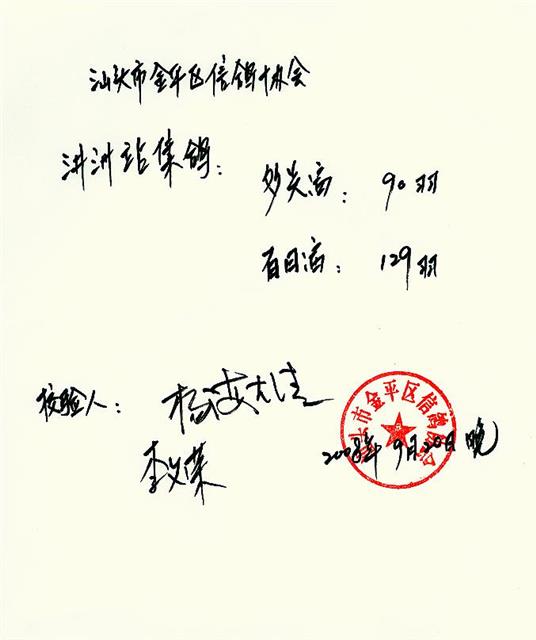 汕头市金平区信鸽协会
洪洲站集鸽：
90羽
百日
129羽
校验人：
李义荣
汕头市金平区信鸽协会
2008年9月20日晚